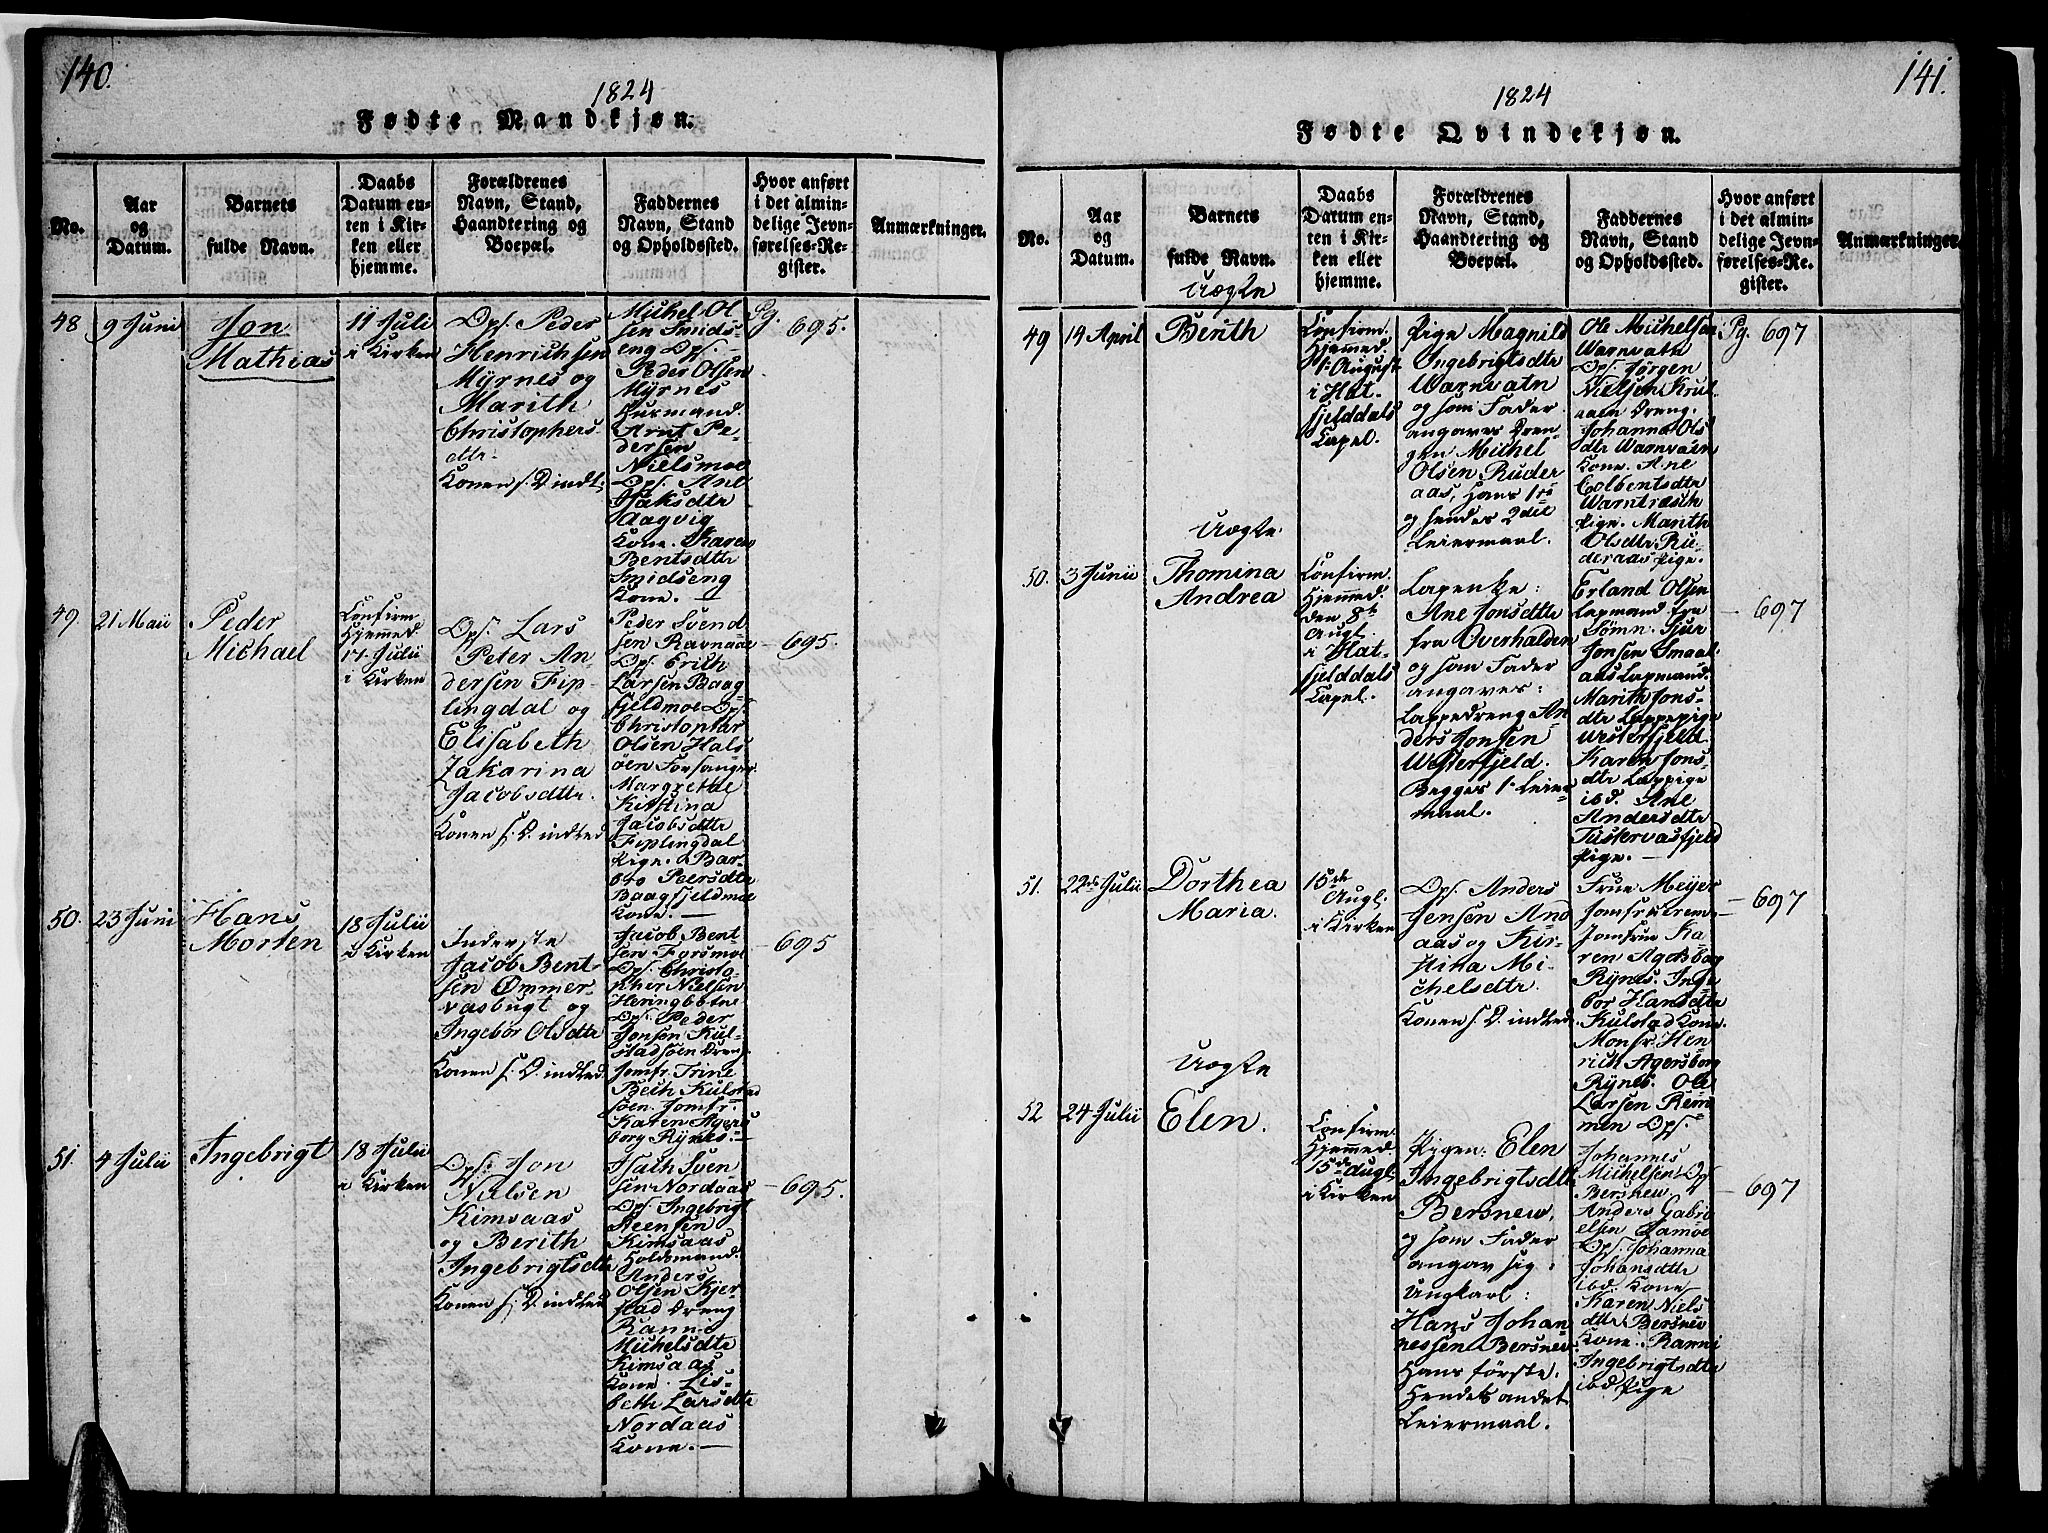 140.
1824
Fødte Mandkjøn.
No.
Aar
og
Datum.
Barnets
fulde Navn.
Daabs
Datum en-
ten i Kir-
ken eller
hjemme.
Forældrenes
Navn, Stand,
Haandtering og
Boepæl.
Faddernes
Navn, Stand
og Opholdssted.
Hvor anført
i det almin-
delige Jevn-
førelses-Re-
gister.
Anmærkninger.
48
9 Juni
Jon
Mathias
11 Juli
i Kirken
Ops. Peder
Henrichsen
Myrnes og
Marith
Christophers-
dtr.
Konen s. D. indt.
Michel Ol
sen Smids-
eng Ops.
Peder Olsen
Myrnes
Huusmand.
Arnt Pe-
dersen
Nielsmoe
Ops. Ane
Isaksdtr
Aagvig
Kone. Karen
Bentsdtr
Smidseng
Kone. —
Pg. 695.
49.
21 Maii
Peder
Michael
Confirm.
Hjemmed.
17 Julii
i Kirken
Ops. Lars
Peter An-
dersen Fip-
lingdal og
Elisabeth
Zakarina
Jacobsdtr.
Konen s. D. indled.
Peder Svend
sen Ravnaae
Ops. Erith
Larsen Baag-
fjeldmoe Ops.
Christophar
Olsen Hals
öen Forsanger.
Margrethe
Kirstina
Jacobsdtr
Fiplingdal
Pige. Bar-
bro Peersdtr
Baagfjeldmoe
Kone. —
— 695.
50.
23 Juni
Hans
Morten
18 Julii
i Kirken
Inderste
Jacob Bent-
sen Ommer-
vasbugt og
Ingebor Olsdtr
Konen s. D. indled.
Jacob Bent-
sen Forsmoe
Ops. Christo-
pher Nielsen
Heringbotne
Ops. Peder
Jonsen Kul-
stadsöen Dreng.
Jomfr. Trine
Beth Kulstad
söen. Jomfr.
Karen Agers
borg Rynes. —
— 695
51.
4 Julii
Ingebrigt
18 Julii
i Kirken
Ops. Jon
Nielsen
Kimsaas
og Berith
Ingebrigtsdtr
Konen s. D. indled.
Isach Sven
sen Nordaas
Ops. Ingebrigt
Steensen
Kimsaas
Holdsmand.
Anders
Olsen Kjer-
stad Dreng
Ranni
Michelsdtr
Kimsaas
Kone. Lis-
beth Larsdtr
Nordaas
Kone. —
— 695.
141.
1824
Fødte Qvindekjøn.
No.
Aar
og
Datum.
Barnets
fulde Navn.
Daabs
Datum en-
ten i Kir-
ken eller
hjemme.
Forældrenes
Navn, Stand,
Haandtering og
Boepæl.
Faddernes
Navn, Stand
og Opholdssted.
Hvor anført
i det almin-
delige Jevn-
førelses-Re-
gister.
Anmærkninger.
49
14 April
Uægte
Berith
Confirm.
Hjemmed.
1. August
i Hat-
fjelddals
Capel.
Pige Magnild
Ingebrigtsdtr
Warnvatn
og som Fader
angaves Dren-
gen Michel
Olsen Ruder
aas, Hans 1ste
og hendes 2det
Leiermaal.
Ole Michelsen
Warnvatn
Ops. Jørgen
Nielsen Krut
aaen Dreng.
Johanna Ols
dtr Warnvatn
Kone. Ane
Colbentsdtr
Warntræsch
Pige. Marith
Olsdtr Ru-
deraas Pige.
Pg. 697
50.
3 Junii
Uægte.
Thomina
Andrea
Confirm.
Hjemmed.
den 8de
Augl.
i Hat-
fjelddals
Capel.
Lapenke:
Ane Jonsdtr
fra Overhalden
og som Fader
angaves:
Lappedreng An
ders Jonsen
Westerfjeld.
Begges 1. Leier
maal.
Erland Olsen
Lapmand fra
Sømn. Sjur
Jonsen Smaal
aas Lapmand.
Marith Jons-
dtr Lappepige
Westerfjeld.
Karen Jons-
dtr Lappige
ibd. Ane
Andersdtr
Tuskervasfjeld
Pige. —
— 697
51.
22de Julii
Dorthea
Maria.
15de
Augl.
i Kirken
Ops. Anders
Jensen And
aas og Kir-
stina Mi-
chelsdtr.
Konen s. D. indled.
Frue Meyer
Jomfrue rem-
Jomfrue Ka-
ren Agersborg
Rynes. Inge
bor Hansdtr
Kulstad Kone.
Monsr. Hen-
rich Agersborg
Rynes. Ole
Larsen Rem
men Ops.
— 697
52
24 Julii
Uægte
Elen.
Confirm.
Hjemmed.
15de Augl.
i Kirken
Pigen: Elen
Ingebrigtsdtr
Bersnew,
og som Fader
angav sig:
Ungkarl:
Hans Johan
nessen Bersnew
Hans første.
Hendes andet
Leiermaal.
Johannes
Michelsen Ops
Bersnew
Anders Gabri
elsen Lamoe
Ops. Johanna
Johansdtr
ibd Kone
Karen Niels
dtr Bersnew
Kone. Ranni
Ingebrigtsdtr
ibd Pige
— 697